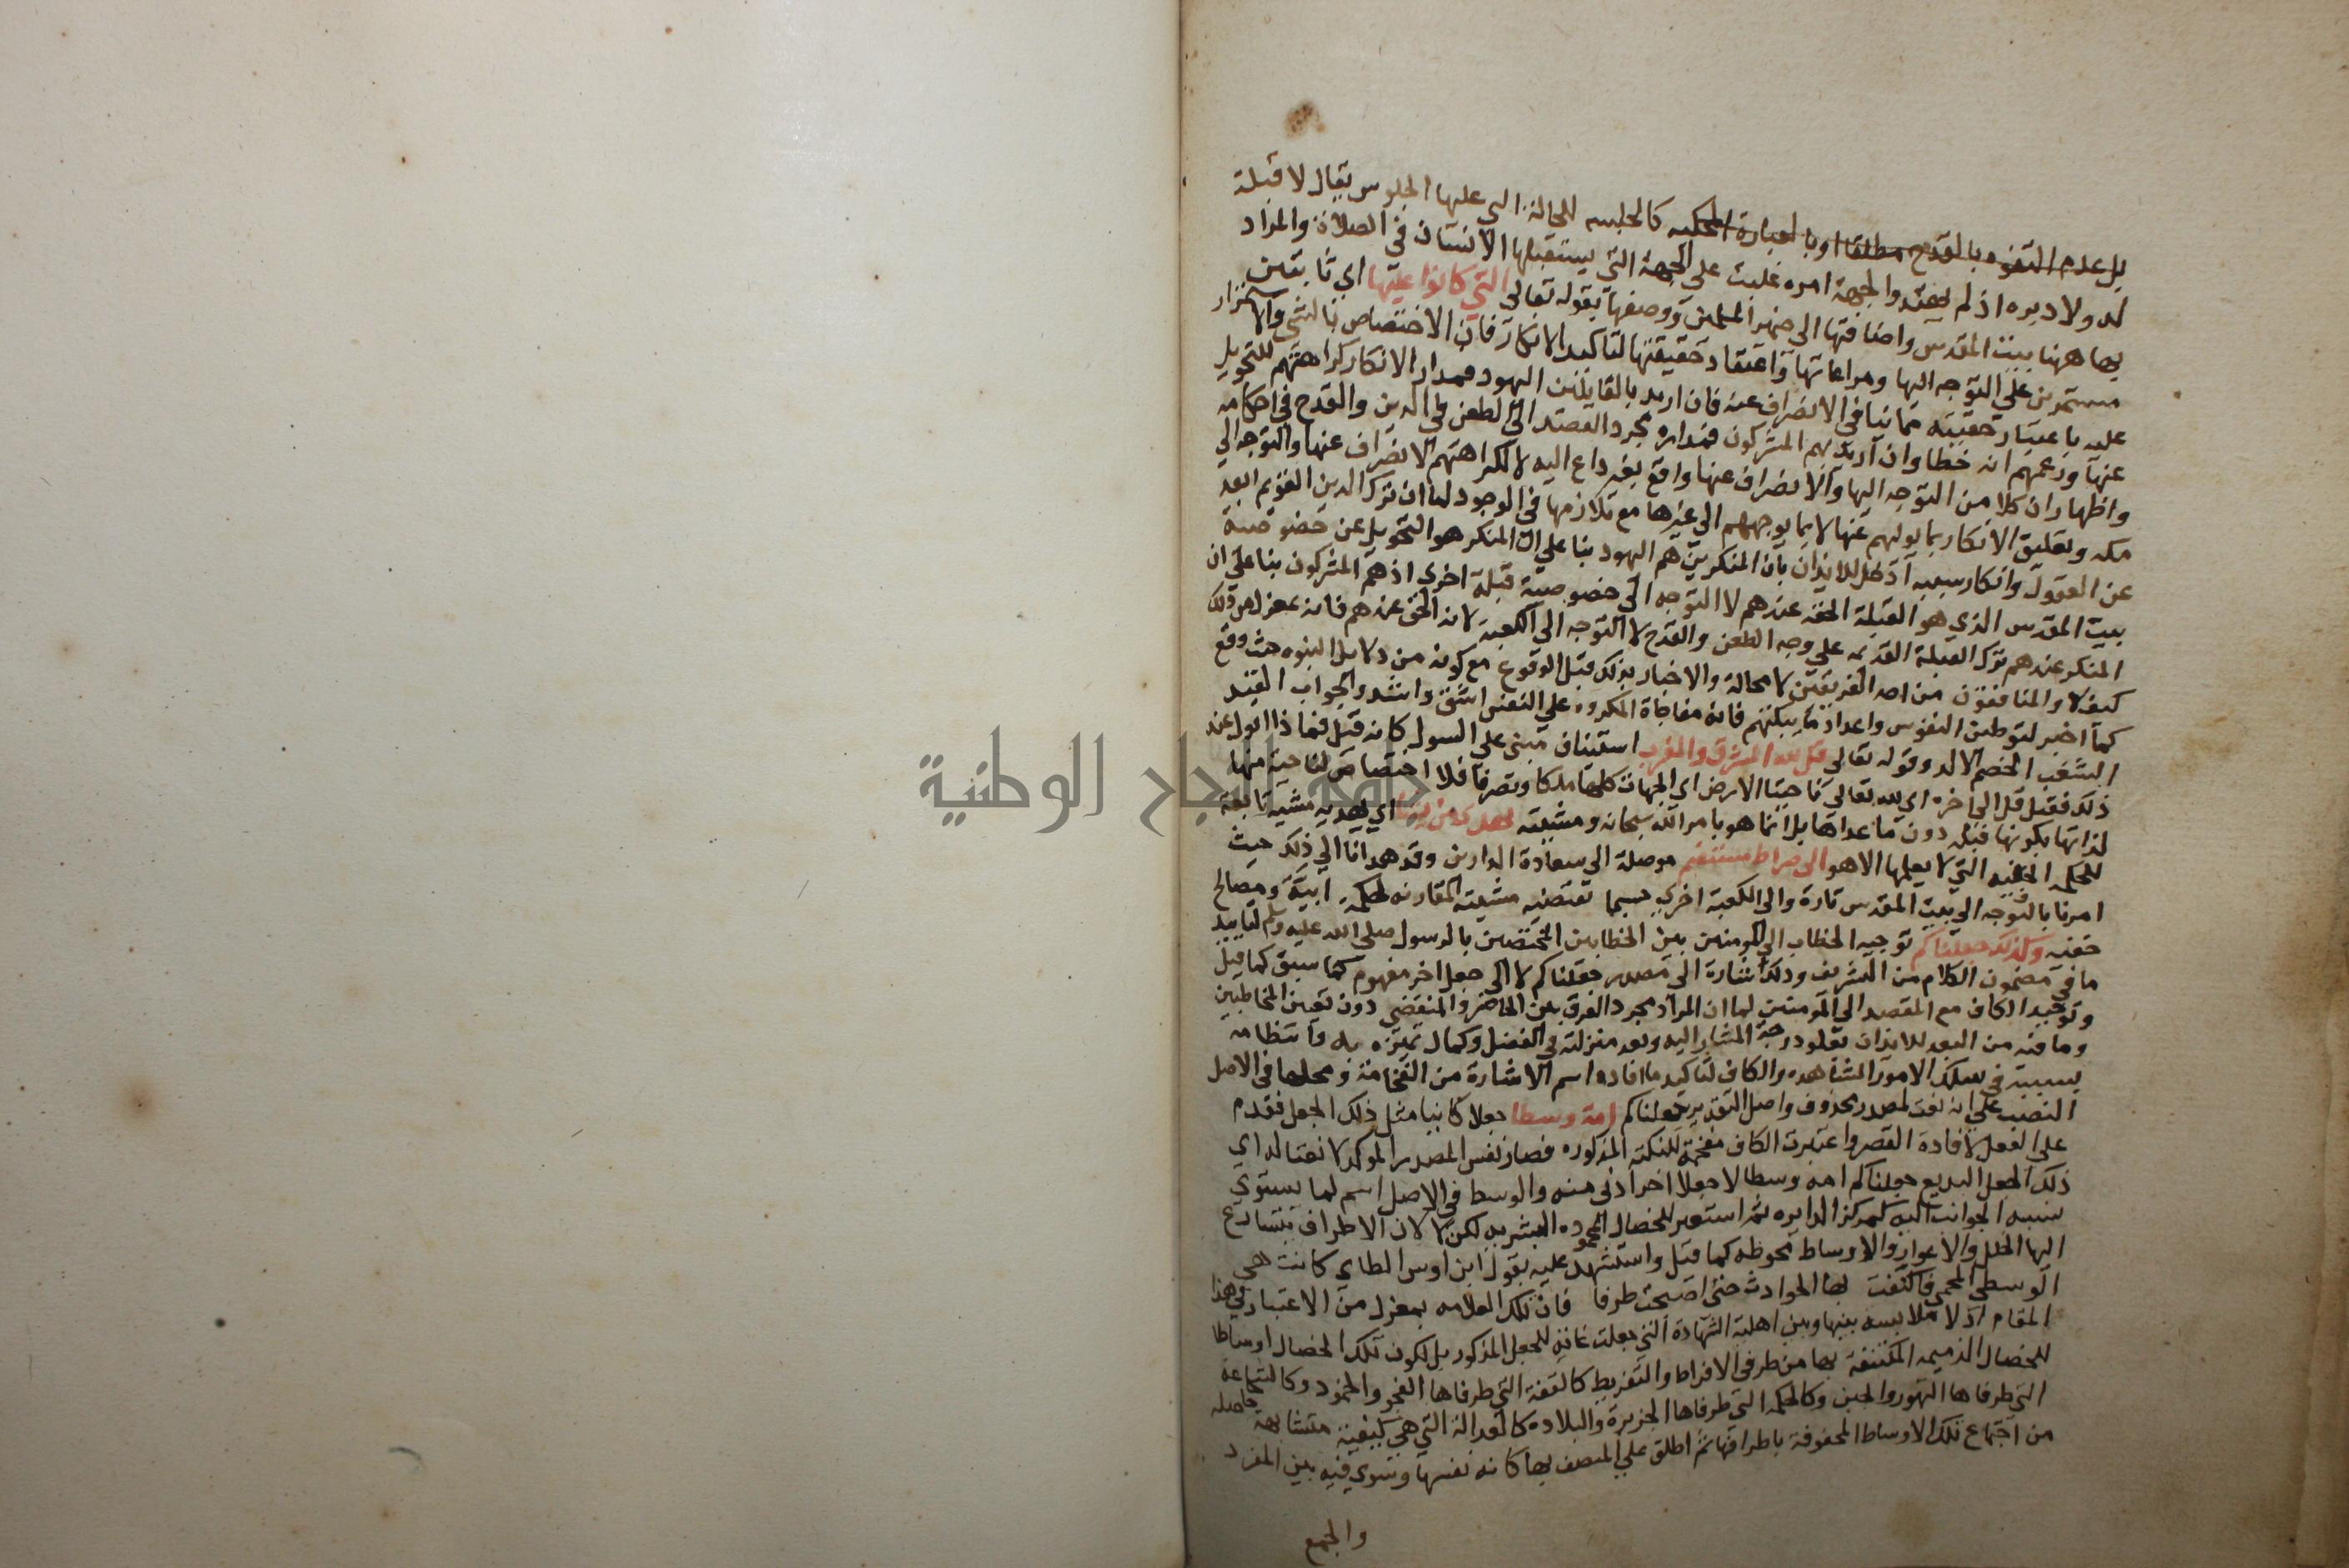 بل عدم التفوه بالقدح مطلقا او بالعبارة المحكيه كالجلسه للحالة التي عليها الجلوس يقال لا قبلة
له ولا دبره اذ لم يهتد والجهة امره غلبت على الجهة التي يستقبلها الانسان في الصلاة والمراد
بها ههنا بيت المقدس واضافتها الى ضمير المسلمين ووصفها بقوله تعالى التي كانوا عليها اي ثابتين
مستمرين على التوجه اليها ومراعاتها واعتقاد حقيقتها لتاكيد الانكار فان الاختصاص بالشئ والاستمرار
عليه باعتبار حقيته مما ينافي الانصراف عنه فان اريد بالقايلين اليهود فمدار الانكار كراهتهم للتحويل
عنها وزعمهم انه خطا وان اريد بهم المشركون فمداره مجرد القصد الى الطعن في الدين والقدح في احكامه
واظهار ان كلا من التوجه اليها والانصراف عنها واقع بغير داع اليه لا لكراهتهم الانصراف عنها والتوجه الي
مكه وتعليق الانكار بما يوليهم عنها لا بما يوجههم الى غيرها مع تلازمها في الوجود لما ان ترك الدين القديم ابعد
عن العقول وانكار سببه ادخل للايذان بان المنكرين هم اليهود بنا على ان المنكر هو التحويل عن خصوصية
بيت المقدس الذي هو القبلة الحقه عندهم لا التوجه الى خصوصية قبلة اخري اذ هم المشركون بنا على ان
المنكر عندهم ترك القبلة القديمه على وجه الطعن والقدح لا التوجه الى الكعبة لانه الحق عندهم فانه بمعزل من ذلك
كيف لا والمنافقون من احد الفريقين لا محالة والاخبار بذلك قبل الوقوع مع كونه من دلايل النبوه حيث وقع
كما اخبر لتوطين النفوس واعداد ما يبكتهم فان مفاجاة المكروه على النفس اشق واشد والجواب العتيد
الشغب الخصم الالد وقوله تعالى قل لله المشرق والمغرب استئناف مبني على السول كانه قيل فماذا اقول عند
ذلك فقيل قل الى اخره اي لله تعالى ناحيتا الارض اي الجهات كلها ملكا وتصرفا فلا اختصاص لناحية منها
لذاتها بكونها قبله دون ما عداها بل انما هو بامر الله سبحانه ومشيته يهدي من يشا اي يهديه مشية تابعة
للحكم الخفيه التي لا يعلمها الا هو الى صراط مستقيم موصلة الى سعادة الدارين وقد هدانا الي ذلك حيث
امرنا بالتوجه الى بيت المقدس تارة والى الكعبة اخري حسبما تقتضيه مشيته المقارنه لحكمة ابية ومصالح
خفيه وكذلك جعلناكم توجيه الخطاب الى المومنين بين الخطابين المختصين بالرسول صلى الله عليه وسلم لتاييد
ما في مضمون الكلام من التشريف وذلك اشارة الى مصدر جعلناكم لا الى جعل اخر مفهوم مما سبق كما قيل
وتوحيد الكاف مع المقصد الى المومنين لما ان المراد مجرد الفرق بين الحاضر والمنقضي دون تعيين المخاطبين
وما فيه من البعد للايذان بعلو درجة المشار اليه وبعد منزلته في الفضل وكمال تميزه به وانتظامه
بسببه في سلك الامور المشاهده والكاف لتاكيد ما افاده اسم الاشارة من الفخامة ومحلها في الاصل
النصب على انه نعت لمصدر محذوف واصل التقدير جعلناكم امة وسطا جعلا كائنا مثل ذلك الجعل فقدم
على الفعل لافادة القصر واعتبرت الكاف مقحمة للنكتة المذكوره فصار نفس المصدر الموكد لا نعتا له اي
ذلك الجعل البديع جعلناكم امه وسطا لا جعلا اخر ادنى منه والوسط في الاصل اسم لما يستوي
نسبه الجوانب اليه كمركز الدايره ثم استعير للخصال المحموده البشريه لكن لا لان الاطراف يتسارع
اليها الخلل والاعوار والاوساط محوطه كما قيل واستشهد عليه بقول ابن اوس الطاي كانت هي
الوسطى المحمي فاكتفت بها الحوادث حتى اصبحت طرفا فان تلك العلامه بمعزل من الاعتبار في هذا
المقام اذ لا ملابسه بينها وبين اهلية الشهادة التي جعلت غاية للجعل المذكور بل لكون تلك الخصال اوساطا
للخصال الذميمه المكتنفة بها من طرفي الافراط والتفريط كالعفة التي طرفاها الفجور والخمود وكالشجاعة
التي طرفاها التهور والجبن وكالحكمة التي طرفاها الجربزة والبلاده كالعدالة التي هي كيفية متشابهة حاصله
من اجتماع تلك الاوساط المحفوفة باطرافها ثم اطلق على المتصف بها كانه نفسها وسوي فيه بين المفرد
والجمع
جامعة النجاح الوطنية